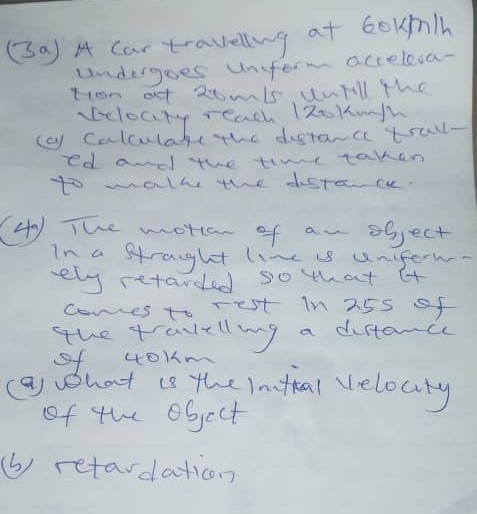 (3a) A Car travelling at 60km/h
undergoes uniform accelera-
tion at 20m/s untill the
velocity reach 120km/h
(a) Calculate the distance trav-
ed and the time taken
to make the distance.
(4a) The motion of an object
In a straight line is uniform-
ely retarded so that it
comes to rest in 25s of
the travelling a distance
of 40km
(a) what is the Initial velocity
of the object
(b) retardation